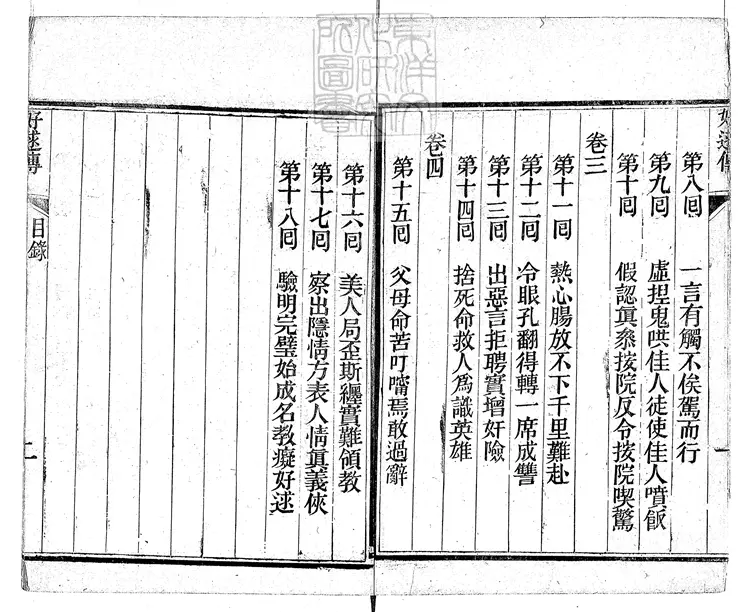 好逑傳
第八囘 一言有觸不俟駕而行
第九囘 虛捏鬼哄佳人徒使佳人噴飯
第十囘 假認眞叅按院反令按院喫驚
卷三
第十一囘 熱心腸放不下千里難赴
第十二囘 冷眼孔翻得轉一席成讐
第十三囘 出惡言拒聘實增奸險
第十四囘 捨死命救人爲識英雄
卷四
第十五囘 父母命苦叮嚀焉敢過辭
第十六囘 美人局歪斯纏實難領教
第十七囘 察出隱情方表人情眞義俠
第十八囘 驗明完璧始成名教癡好逑
好逑傳
目錄
二
東洋文化研究所圖書